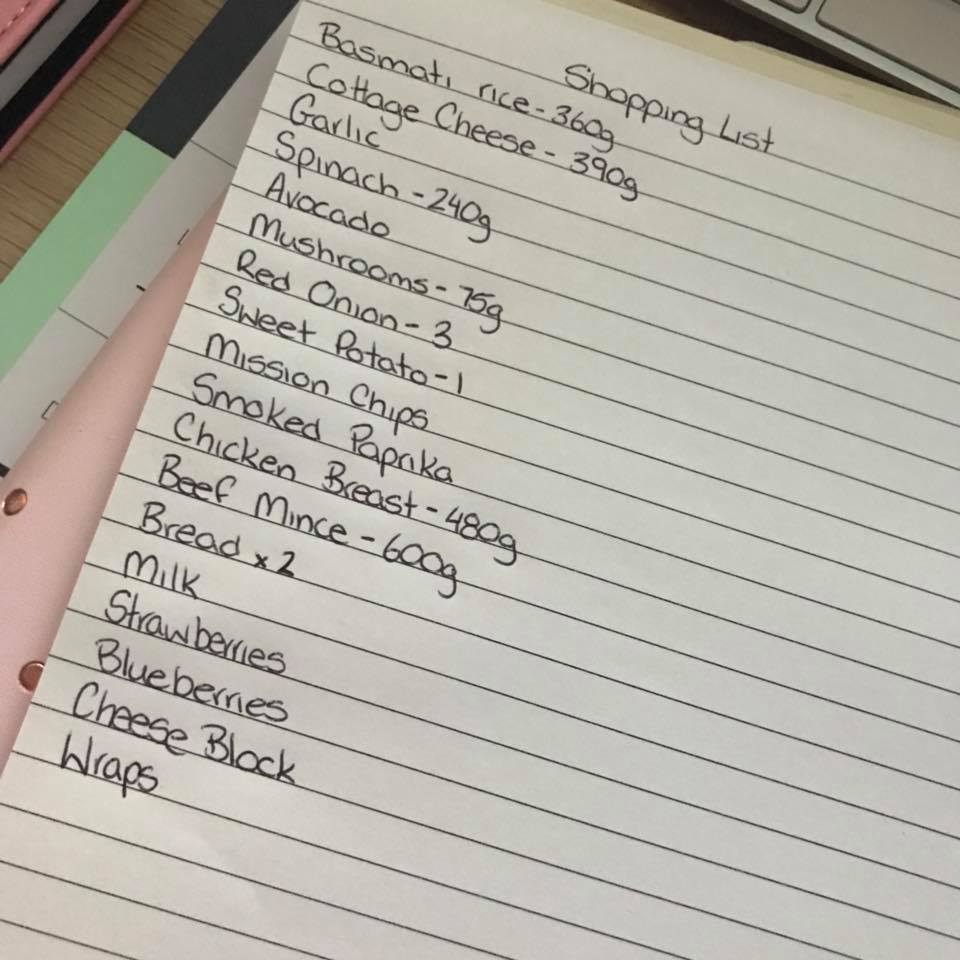 Shopping List
Basmati rice - 360g
Cottage Cheese - 390g
Garlic
Spinach - 240g
Avocado
Mushrooms - 75g
Red Onion - 3
Sweet Potato - 1
Mission Chips
Smoked Paprika
Chicken Breast - 480g
Beef Mince - 600g
Bread x 2
Milk
Strawberries
Blueberries
Cheese Block
Wraps